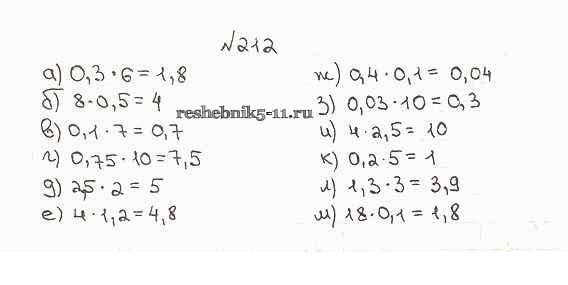 №212
а) 0,3 · 6 = 1,8
б) 8 · 0,5 = 4
в) 0,1 · 7 = 0,7
г) 0,75 · 10 = 7,5
д) 2,5 · 2 = 5
е) 4 · 1,2 = 4,8
reshebnik5-11.ru
ж) 0,4 · 0,1 = 0,04
з) 0,03 · 10 = 0,3
и) 4 · 2,5 = 10
к) 0,2 · 5 = 1
л) 1,3 · 3 = 3,9
м) 18 · 0,1 = 1,8